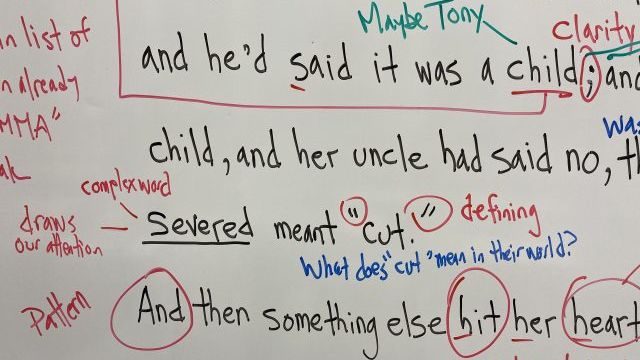 Maybe Tony
Clarity
in list of
and he'd said it was a child; and
already
MMA"
child, and her uncle had said no,
was
complex word
Severed meant "cut."
draws
our attention
defining
What does "cut" mean in their world?
Pattern
And then something else hit her heart